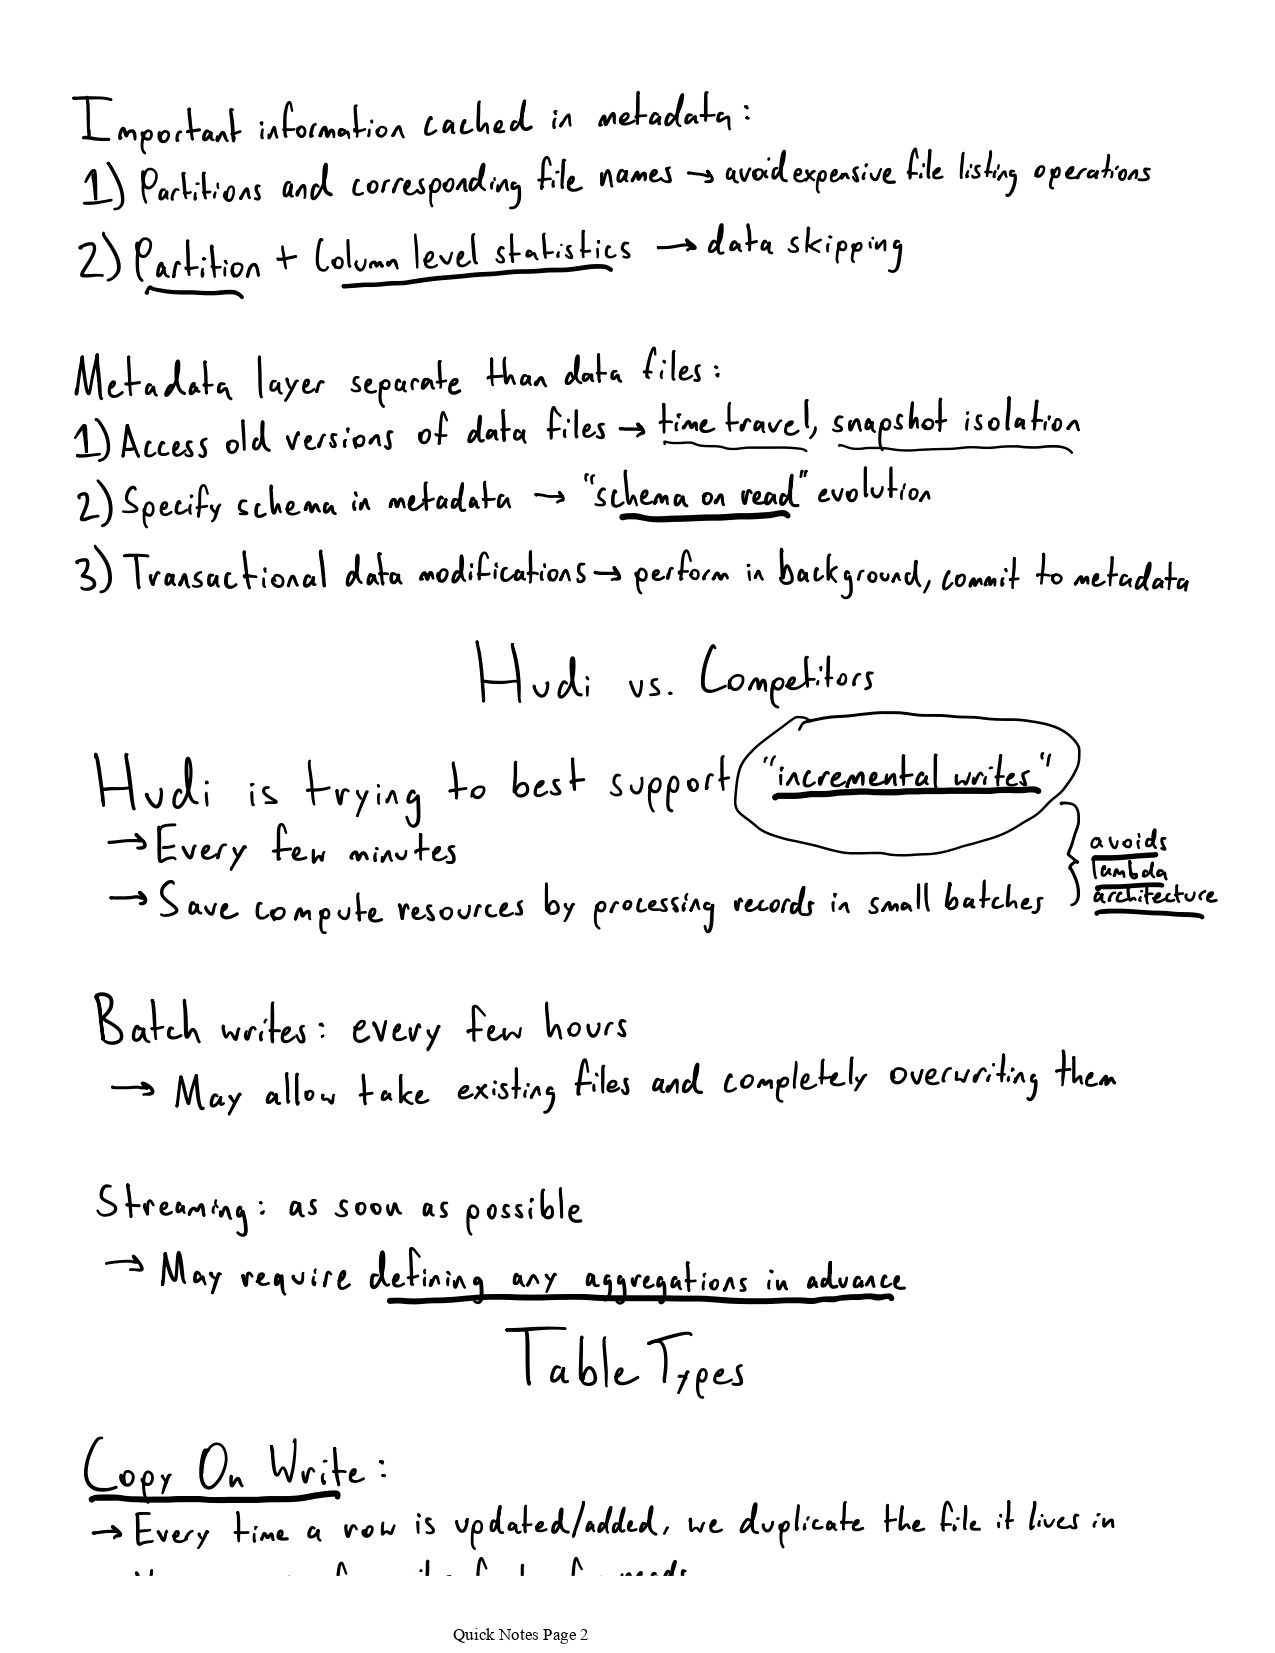 Important information cached in metadata:
1) Partitions and corresponding file names → avoid expensive file listing operations
2) Partition + Column level statistics → data skipping
Metadata layer separate than data files:
1) Access old versions of data files → time travel, snapshot isolation
2) Specify schema in metadata → "schema on read" evolution
3) Transactional data modifications → perform in background, commit to metadata
Hudi vs. Competitors
Hudi is trying to best support "incremental writes"
→ Every few minutes
→ Save compute resources by processing records in small batches
avoids
lambda
architecture
Batch writes: every few hours
→ May allow take existing files and completely overwriting them
Streaming: as soon as possible
→ May require defining any aggregations in advance
Table Types
Copy On Write:
→ Every time a row is updated/added, we duplicate the file it lives in
Quick Notes Page 2